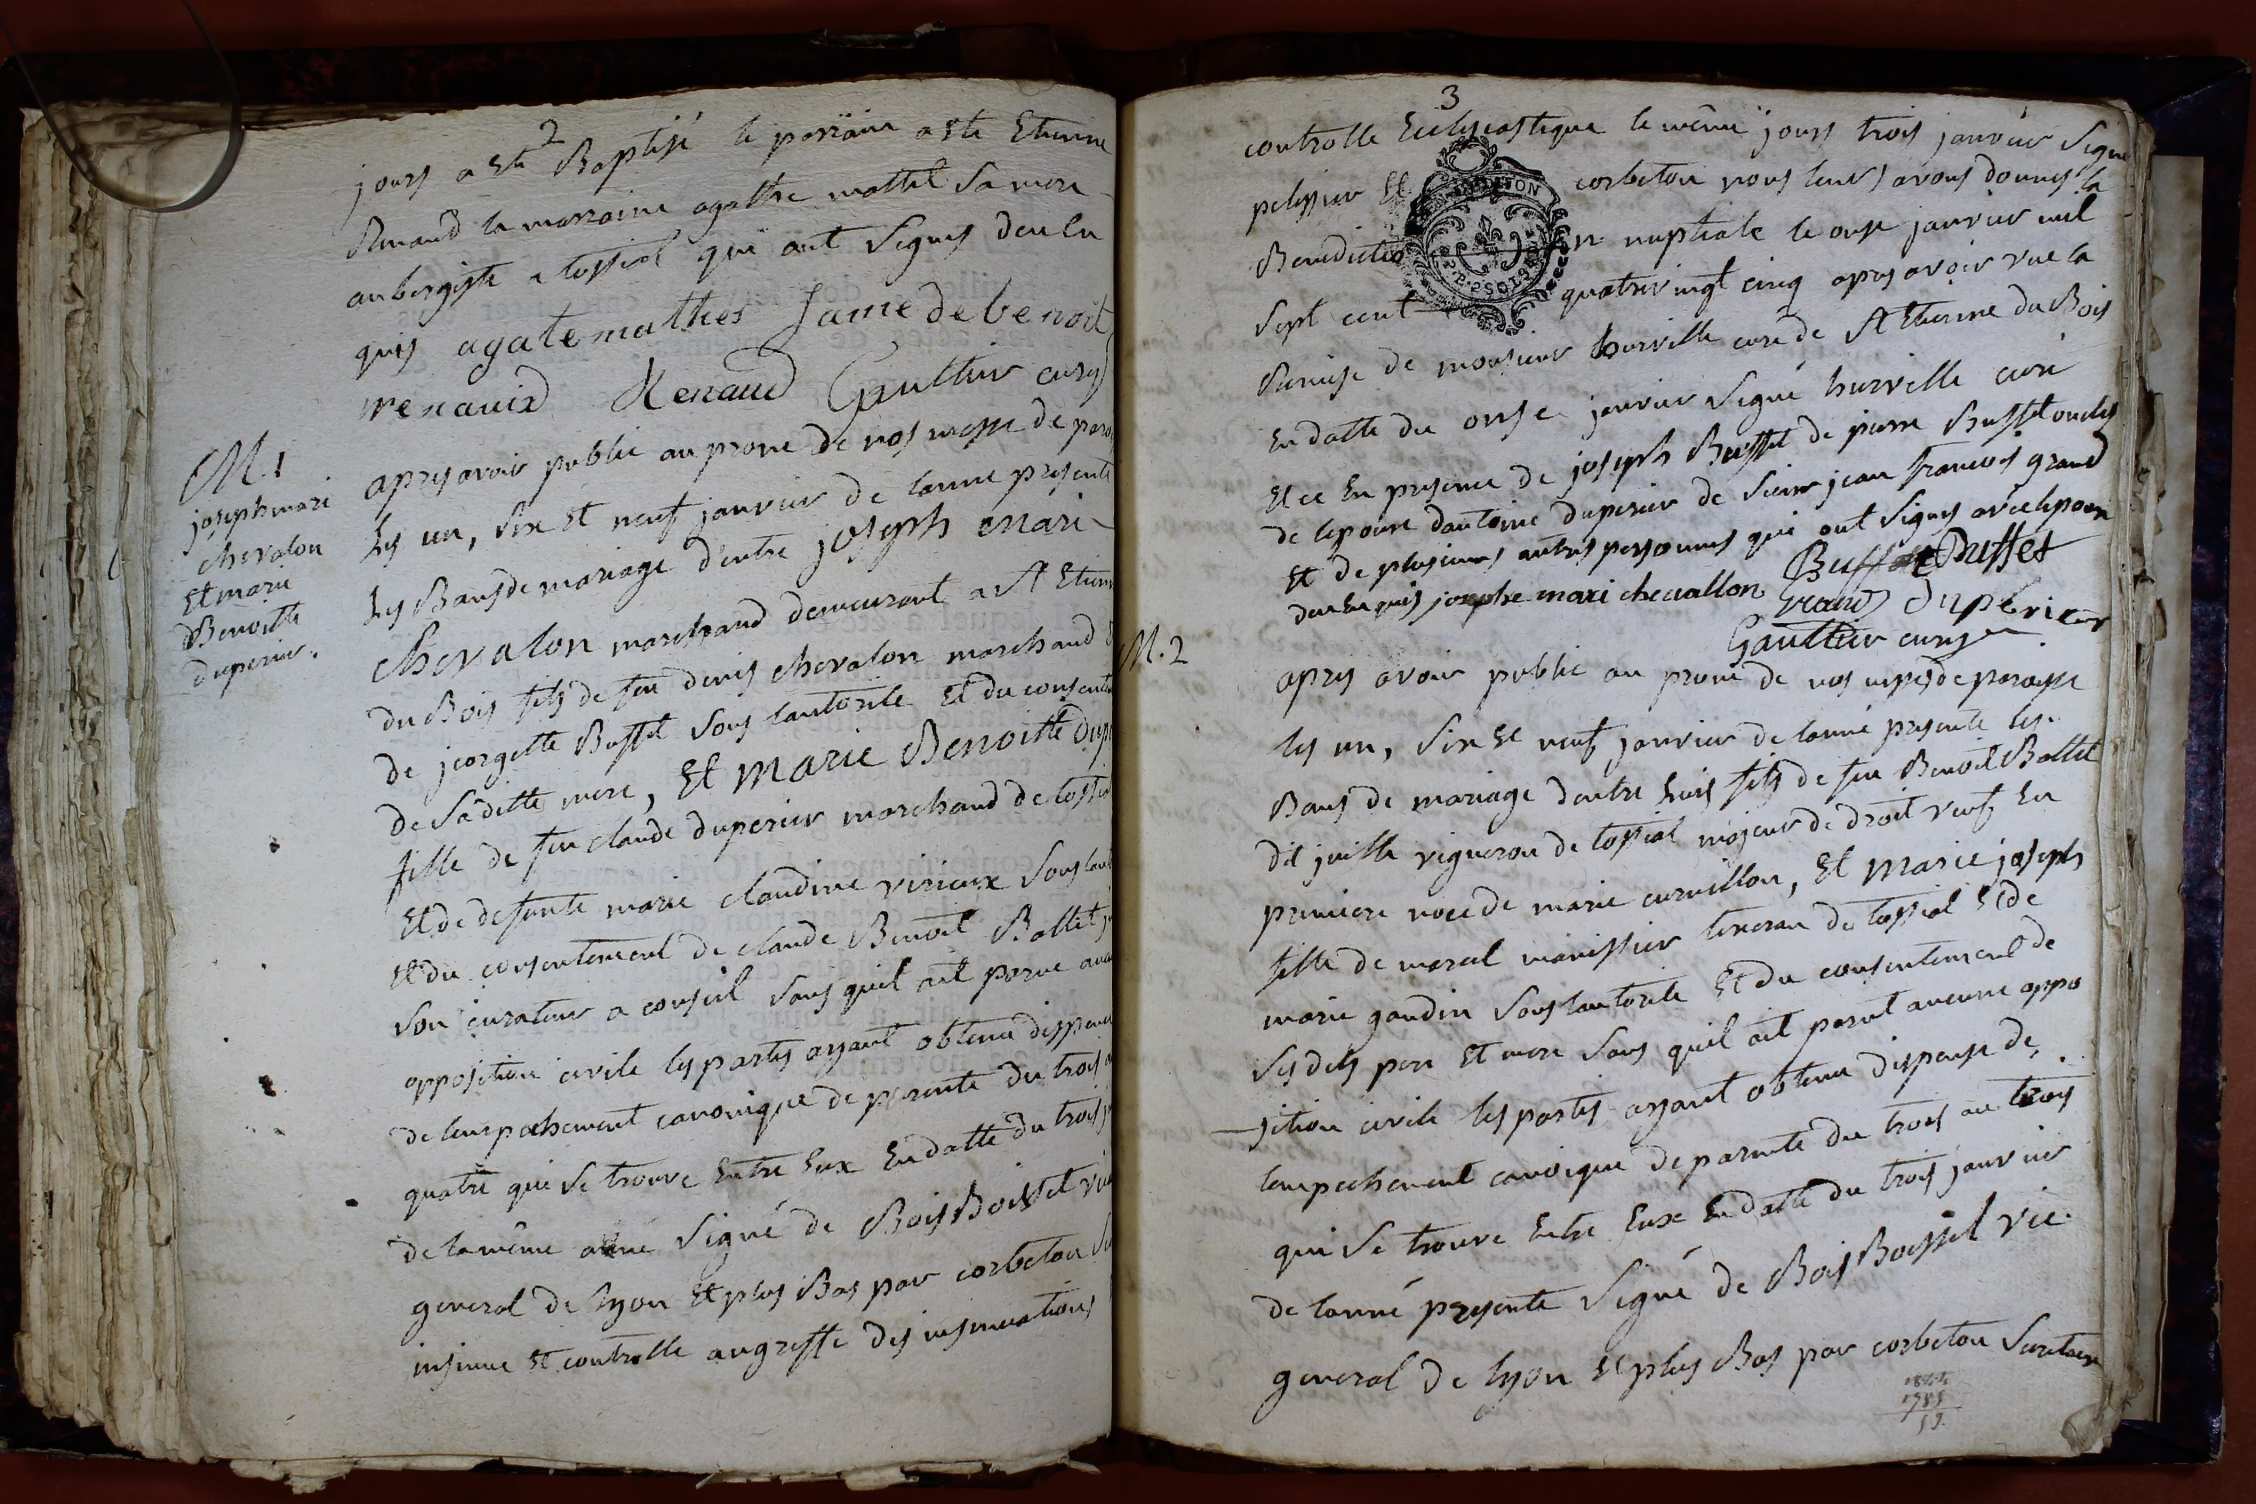 2
jours a eté Baptisé le parrain a ete Etienne
Renaud la marraine agathe mathel sa mere
aubergiste a tossiat qui ont signes deu en
quis agate mathes fame de benoit
renauid Renaud Gaulthier curé
M. 1
joseph mari
chevalon
et marie
Benoitte
duperier.
apres avoir publie au prone de nos messe de paro
les un, six et neuf janvier de lanne presente
les Bans de mariage d'entre joseph mari
chevalon marchand demeurant a st Etienne
du Bois fils de feu denis chevalon marchand
de jeorgette Buffet sous lautorite et du consente
de sa ditte mere, et marie Benoitte Dup
fille de feu claude duperier marchand de tossiat
et de defunte marie claudine virieux sous laut
et du consentement de claude Benoit Ballet
son curateur a conseil sans quil ait parue aucu
opposition civile les partis ayant obtenu dispence
de lempechement canonique de parente du trois a
quatre qui se trouve entre eux en datte du trois j
de la même anne signé de BoisBoissel vic
general de lyon et plus Bas par corbeton se
insinue et controlle au greffe des insinuations
3
controlle Eclesiastique le même jours trois janvier signé
pelissier et corbeton nous leurs avons donnes la
Benediction nuptiale le onze janvier mil
sept cent quatrevingt cinq apres avoir vue la
remise de monsieur hurville curé de st Etienne du Bois
en datte du onse janvier signé hurville curé
et ce en presence de joseph Buffet de pierre Buffet oncles
de lepoux dantoine duperier de sieur jean francois grand
et de plusieurs autres personnes qui ont signes avec lepoux
deu en quis josephe mari chevallon Buffet Buffet
Grand duperier
Gaulthier curé
M. 2
apres avoir publie au prone de nos messes de paroisse
les un, six et neuf janvier de lanné presente les
Bans de mariage dentre louis fils de feu Benoit Ballet
dit juille vigneron de tossiat majeur de droit veuf en
premiere noce de marie curvillon, et marie joseph
fille de marcel manissier tixeran de tossiat et de
marie gaudin sous lautorite et du consentement de
ses dits pere et mere sans quil ait parut aucune oppo
sition civile les partis ayant obtenu dispense de
lempechement canoique de parente du trois au trois
qui se trouve entre eux en datte du trois janvier
de lanné presente signé de BoisBoissel vic.
general de lyon et plus Bas par corbeton secretaire
1785